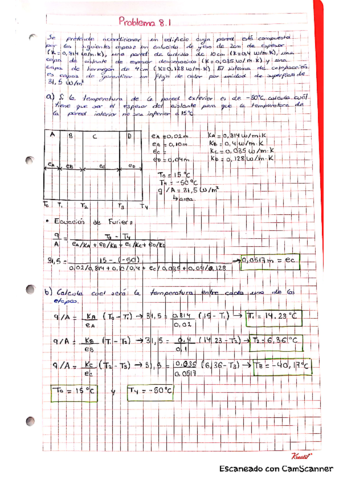 Problema 8.1
Se pretende acondicionar un edificio cuya pared está compuesta
por las siguientes capas: un enlucido de yeso de 2cm de espesor
(K = 0,814 w/m·K), una pared de ladrillo de 10 cm (K=0,4 w/m·K), una
capa de aislante de espesor desconocido (K = 0,035 w/m·K) y una
capa de hormigón de 4 cm (K=0,128 w/m·K). El sistema de calefacción
es capaz de garantizar un flujo de calor por unidad de superficie de
31,5 w/m²
a) Si la temperatura de la pared exterior es de -50°C, calcula cuál
tiene que ser el espesor del aislante para que la temperatura de
la pared interior no sea inferior a 15°C
A B C D
eA eB eC eD
T0 T1 T2 T3 T4
eA = 0,02m KA = 0,814 w/m·K
eB = 0,10m KB = 0,4 w/m·K
eC = KC = 0,035 w/m·K
eD = 0,04m KD = 0,128 w/m·K
T0 = 15 °C
T4 = -50°C
q/A = 31,5 w/m²
área
• Ecuación de Fourier:
q/A = (T0 - T4) / (eA/KA + eB/KB + eC/KC + eD/KD)
31,5 = (15 - (-50)) / (0,02/0,814 + 0,10/0,4 + eC/0,035 + 0,04/0,128) → 0,0517m = eC
b) Calcula cuál será la temperatura entre cada una de las
etapas.
q/A = KA/eA (T0 - T1) → 31,5 = 0,814/0,02 (15 - T1) → T1 = 14,23°C
q/A = KB/eB (T1 - T2) → 31,5 = 0,4/0,1 (14,23 - T2) → T2 = 6,36°C
q/A = KC/eC (T2 - T3) → 31,5 = 0,035/0,0517 (6,36 - T3) → T3 = -40,17°C
T0 = 15°C y T4 = -50°C
Escaneado con CamScanner